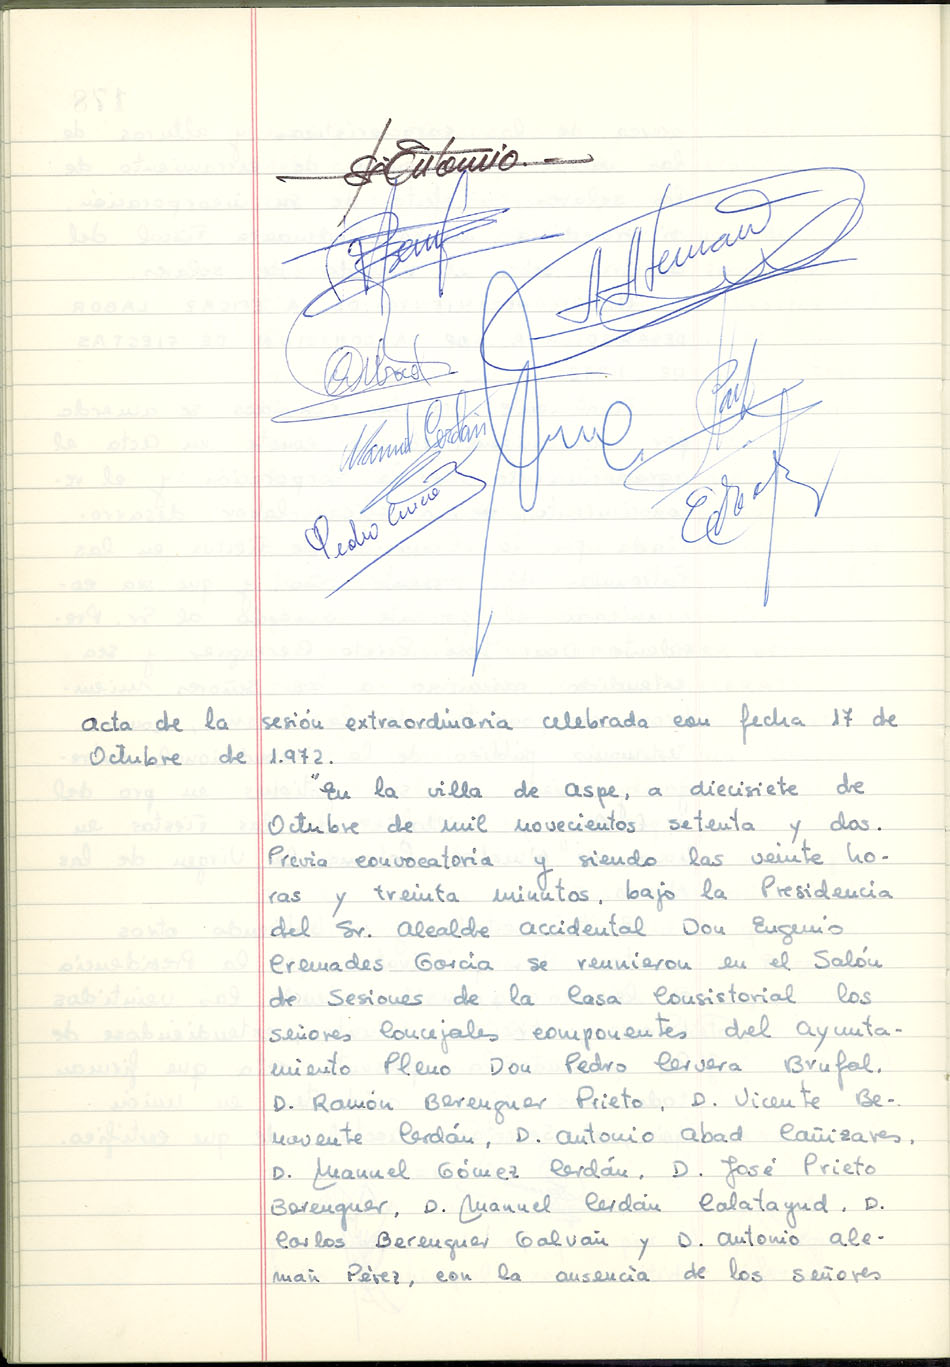 Manuel Cerdán
Pedro
acta de la sesión extraordinaria celebrada con fecha 17 de
Octubre de 1.972.
"En la villa de Aspe, a diecisiete de
Octubre de mil novecientos setenta y dos.
Previa convocatoria y siendo las veinte ho-
ras y treinta minutos, bajo la Presidencia
del Sr. Alcalde Accidental Don Eugenio
Cremades García se reunieron en el Salón
de Sesiones de la Casa Consistorial los
señores Concejales componentes del Ayunta-
miento Pleno Don Pedro Cervera Brufal,
D. Ramón Berenguer Prieto, D. Vicente Be-
novente Cerdán, D. Antonio Abad Cañizares,
D. Manuel Gómez Cerdán, D. José Prieto
Berenguer, D. Manuel Cerdán Calatayud, D.
Carlos Berenguer Galvañ y D. Antonio Ale-
mañ Pérez, con la ausencia de los señores